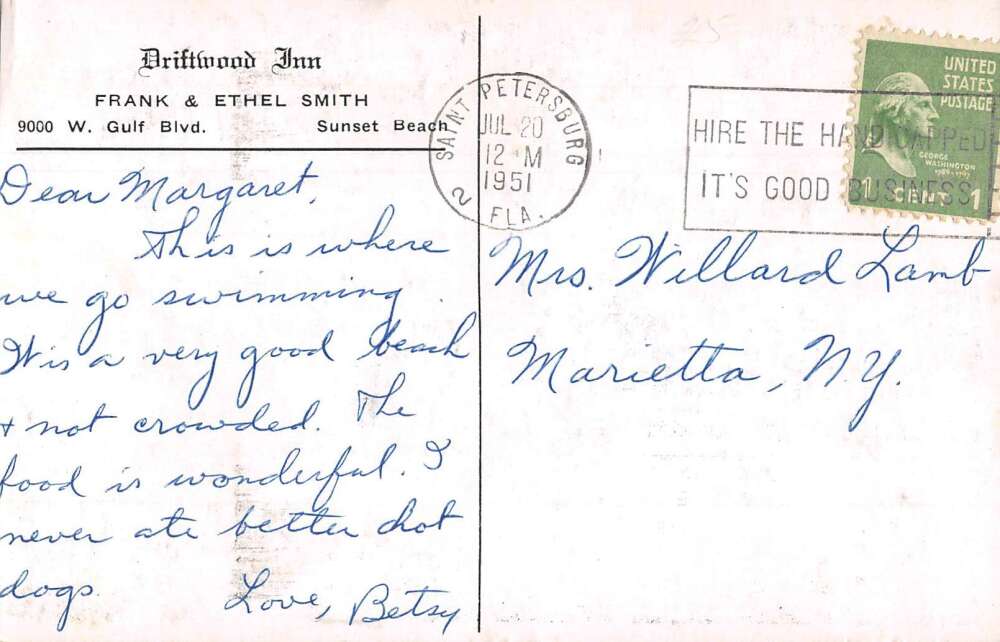 Driftwood Inn
FRANK & ETHEL SMITH
9000 W. Gulf Blvd. Sunset Beach
Dear Margaret,
This is where
we go swimming.
It is a very good beach
+ not crowded. The
food is wonderful. I
never ate better hot
dogs.
Love, Betsy
25
SAINT PETERSBURG
JUL 20
12 M
1951
2 FLA.
HIRE THE HANDICAPPED
IT'S GOOD BUSINESS
UNITED
STATES
POSTAGE
GEORGE
WASHINGTON
1789-1797
1 CENT 1
Mrs. Willard Lamb
Marietta, N.Y.